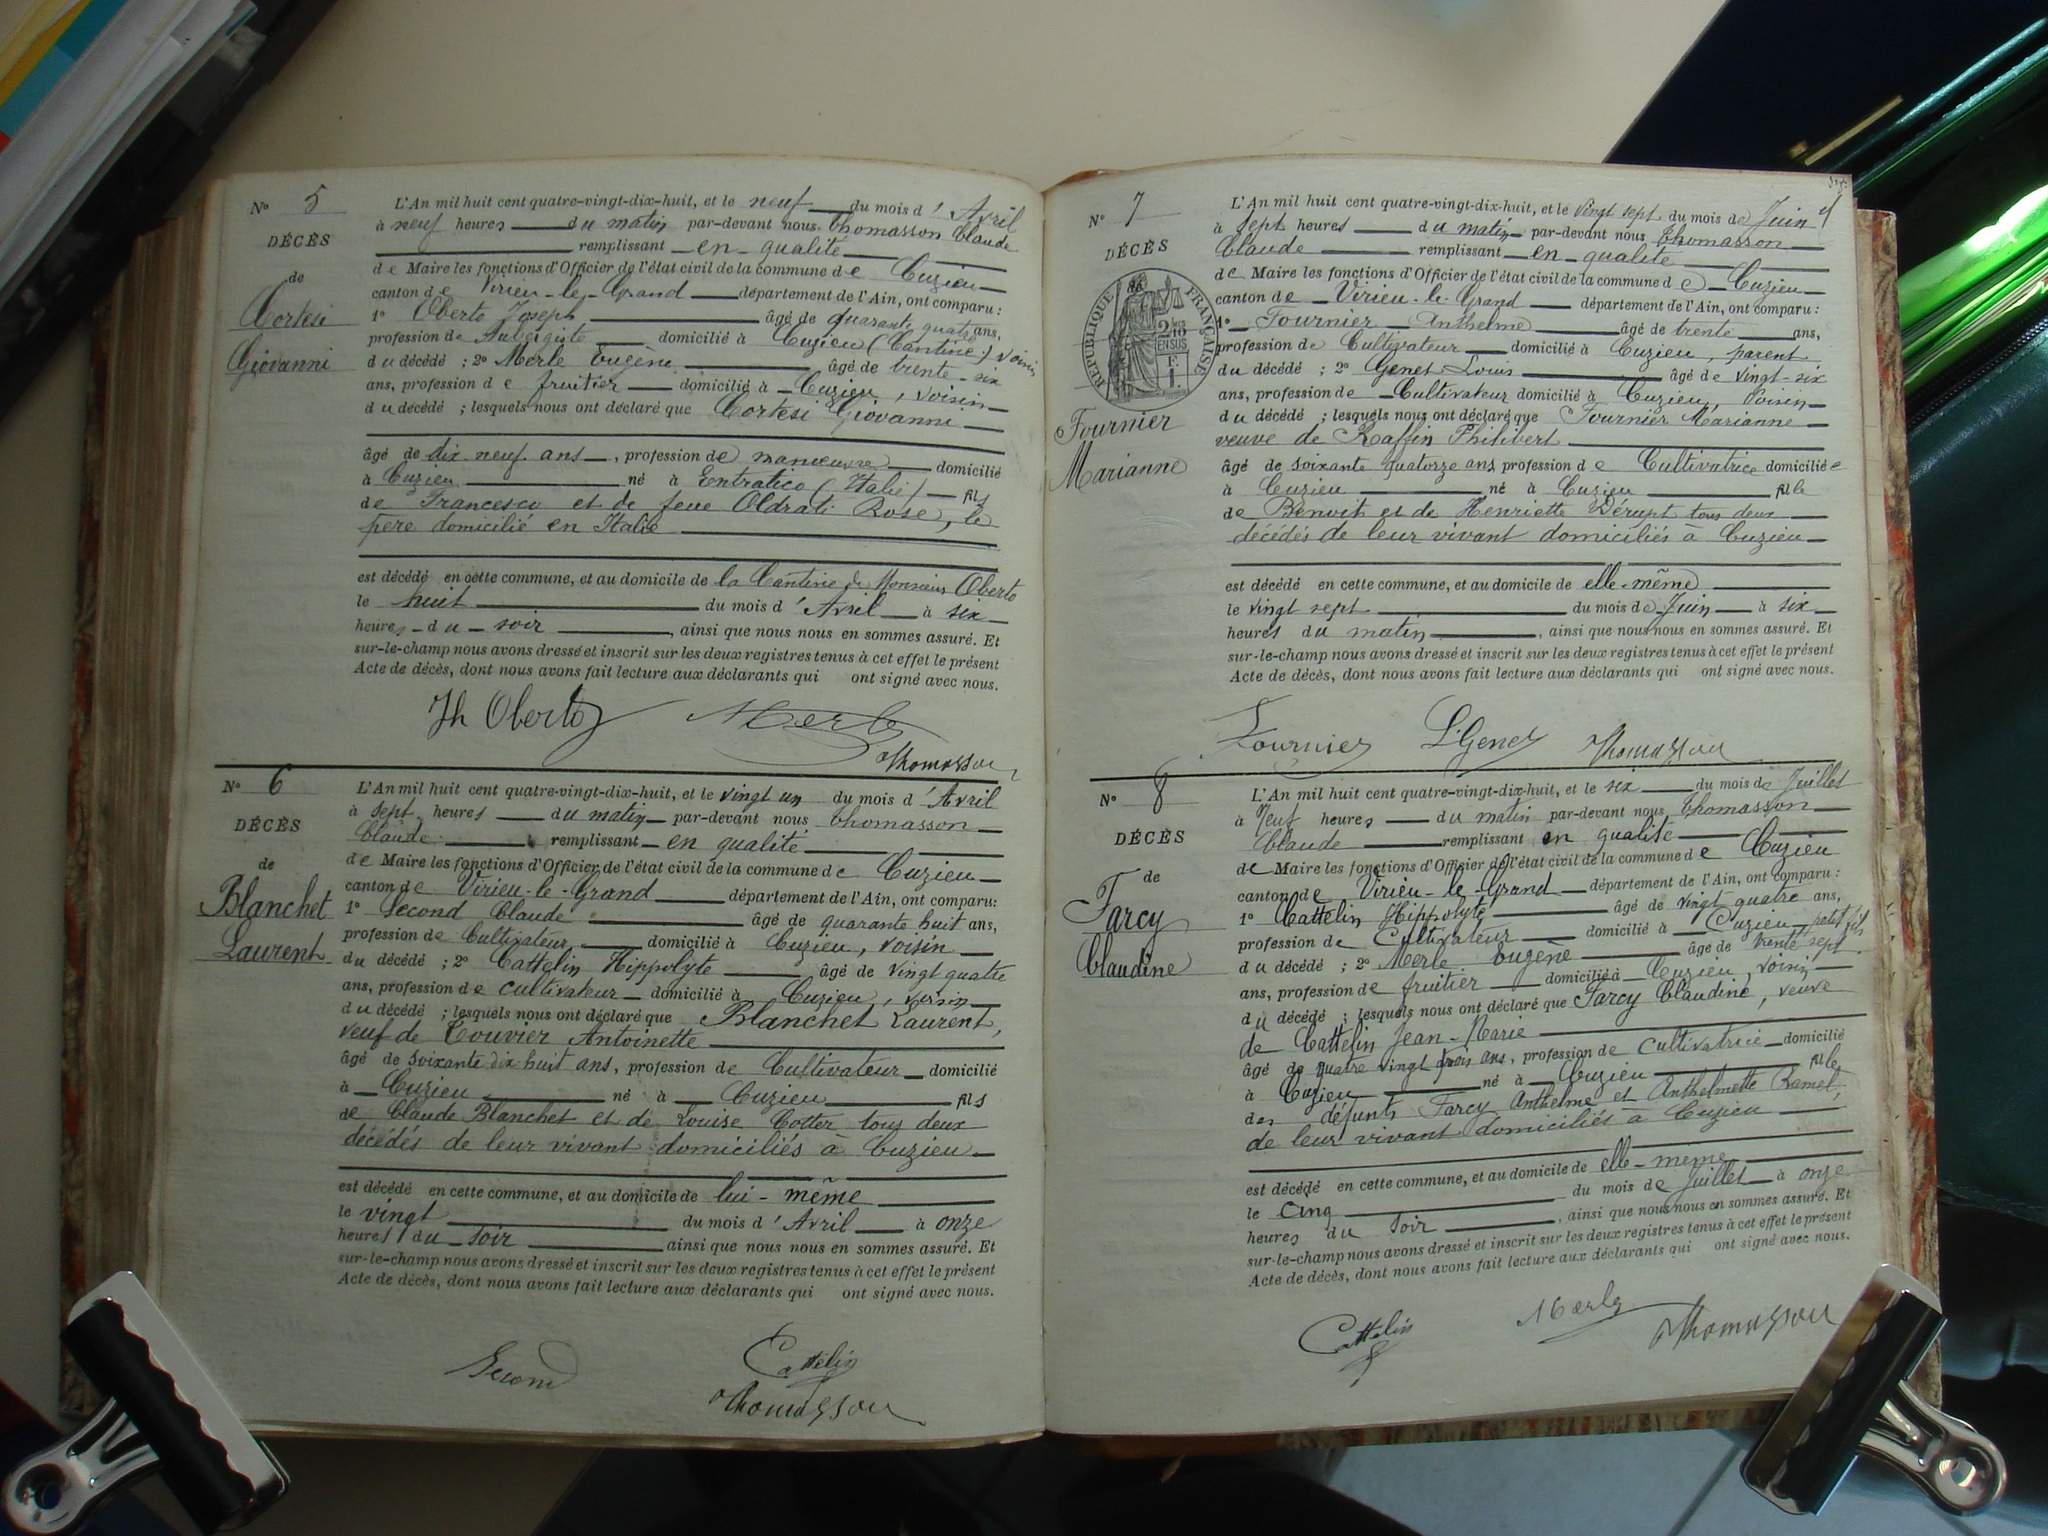 N° 5
DÉCÈS
de
Cortesi
Giovanni
L'An mil huit cent quatre-vingt-dix-huit, et le neuf du mois d'Avril
à neuf heures du matin par-devant nous Thomasson Claude
remplissant en qualité
de Maire les fonctions d'Officier de l'état civil de la commune de Cuzieu
canton de Virieu-le-Grand département de l'Ain, ont comparu :
1° Oberto Joseph âgé de quarante quatre ans,
profession de Aubergiste domicilié à Cuzieu (Cantine) voisin
du décédé ; 2° Merle Eugène âgé de trente-six
ans, profession de fruitier domicilié à Cuzieu, voisin
du décédé ; lesquels nous ont déclaré que Cortesi Giovanni
âgé de dix neuf ans, profession de manœuvre domicilié
à Cuzieu né à Entratico (Italie) fils
de Francesco et de feue Oldrati Rose, le
père domicilié en Italie
est décédé en cette commune, et au domicile de la Cantine de Monsieur Oberto
le huit du mois d'Avril à six
heures du soir, ainsi que nous nous en sommes assuré. Et
sur-le-champ nous avons dressé et inscrit sur les deux registres tenus à cet effet le présent
Acte de décès, dont nous avons fait lecture aux déclarants qui ont signé avec nous.
Jh Oberto Merle
Thomasson
N° 6
DÉCÈS
de
Blanchet
Laurent
L'An mil huit cent quatre-vingt-dix-huit, et le vingt un du mois d'Avril
à sept heures du matin par-devant nous Thomasson
Claude remplissant en qualité
de Maire les fonctions d'Officier de l'état civil de la commune de Cuzieu
canton de Virieu-le-Grand département de l'Ain, ont comparu :
1° Second Claude âgé de quarante huit ans,
profession de Cultivateur domicilié à Cuzieu, voisin
du décédé ; 2° Cattelin Hippolyte âgé de vingt quatre
ans, profession de cultivateur domicilié à Cuzieu, voisin
du décédé ; lesquels nous ont déclaré que Blanchet Laurent,
veuf de Touvier Antoinette
âgé de soixante dix huit ans, profession de Cultivateur domicilié
à Cuzieu né à Cuzieu fils
de Claude Blanchet et de Louise Cotter tous deux
décédés de leur vivant domiciliés à Cuzieu
est décédé en cette commune, et au domicile de lui-même
le vingt du mois d'Avril à onze
heures du soir ainsi que nous nous en sommes assuré. Et
sur-le-champ nous avons dressé et inscrit sur les deux registres tenus à cet effet le présent
Acte de décès, dont nous avons fait lecture aux déclarants qui ont signé avec nous.
Second Cattelin
Thomasson
N° 7
DÉCÈS
RÉPUBLIQUE FRANÇAISE
EN SUS
Fournier
Marianne
L'An mil huit cent quatre-vingt-dix-huit, et le vingt sept du mois de Juin
à sept heures du matin par-devant nous Thomasson
Claude remplissant en qualité
de Maire les fonctions d'Officier de l'état civil de la commune de Cuzieu
canton de Virieu-le-Grand département de l'Ain, ont comparu :
1° Fournier Anthelme âgé de trente ans,
profession de Cultivateur domicilié à Cuzieu, parent
du décédé ; 2° Genet Louis âgé de vingt-six
ans, profession de Cultivateur domicilié à Cuzieu, voisin
du décédé ; lesquels nous ont déclaré que Fournier Marianne
veuve de Raffin Philibert
âgé de soixante quatorze ans profession de Cultivatrice domiciliée
à Cuzieu né à Cuzieu fille
de Benoit et de Henriette Dérupt tous deux
décédés de leur vivant domiciliés à Cuzieu
est décédé en cette commune, et au domicile de elle-même
le vingt sept du mois de Juin à six
heures du matin, ainsi que nous nous en sommes assuré. Et
sur-le-champ nous avons dressé et inscrit sur les deux registres tenus à cet effet le présent
Acte de décès, dont nous avons fait lecture aux déclarants qui ont signé avec nous.
Fournier L Genet Thomasson
N° 8
DÉCÈS
de
Farcy
Claudine
L'An mil huit cent quatre-vingt-dix-huit, et le six du mois de Juillet
à Neuf heures du matin par-devant nous Thomasson
Claude remplissant en qualité
de Maire les fonctions d'Officier de l'état civil de la commune de Cuzieu
canton de Virieu-le-Grand département de l'Ain, ont comparu :
1° Cattelin Hippolyte âgé de vingt quatre ans,
profession de Cultivateur domicilié à Cuzieu, petit fils
du décédé ; 2° Merle Eugène âgé de trente sept
ans, profession de fruitier domicilié à Cuzieu, voisin
du décédé ; lesquels nous ont déclaré que Farcy Claudine, veuve
de Cattelin Jean-Marie
âgé de quatre vingt trois ans, profession de cultivatrice domicilié
à Cuzieu né à Cuzieu fille
des défunts Farcy Anthelme et Anthelmette Ramel,
de leur vivant domiciliés à Cuzieu
est décédé en cette commune, et au domicile de elle-même
le cinq du mois de Juillet à onze
heures du soir, ainsi que nous nous en sommes assuré. Et
sur-le-champ nous avons dressé et inscrit sur les deux registres tenus à cet effet le présent
Acte de décès, dont nous avons fait lecture aux déclarants qui ont signé avec nous.
Cattelin Merle Thomasson